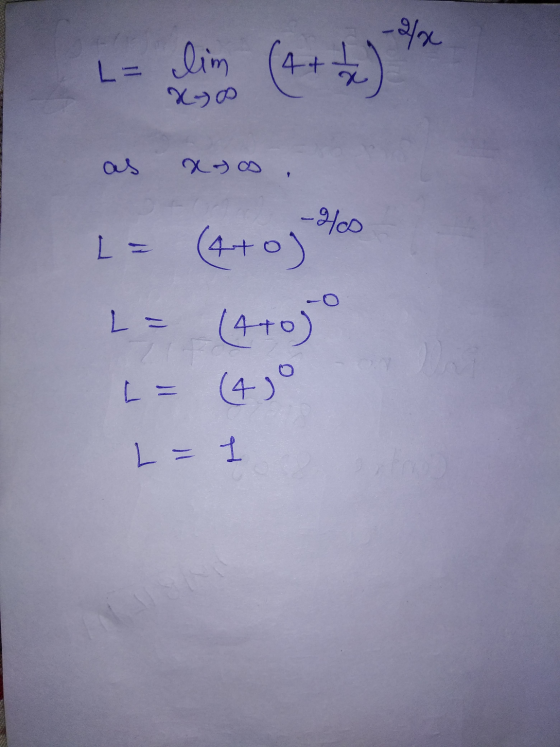 L = lim x→∞ (4 + 1/x)^(-2/x)
as x→∞ .
L = (4+0)^(-2/∞)
L = (4+0)^(-0)
L = (4)^0
L = 1